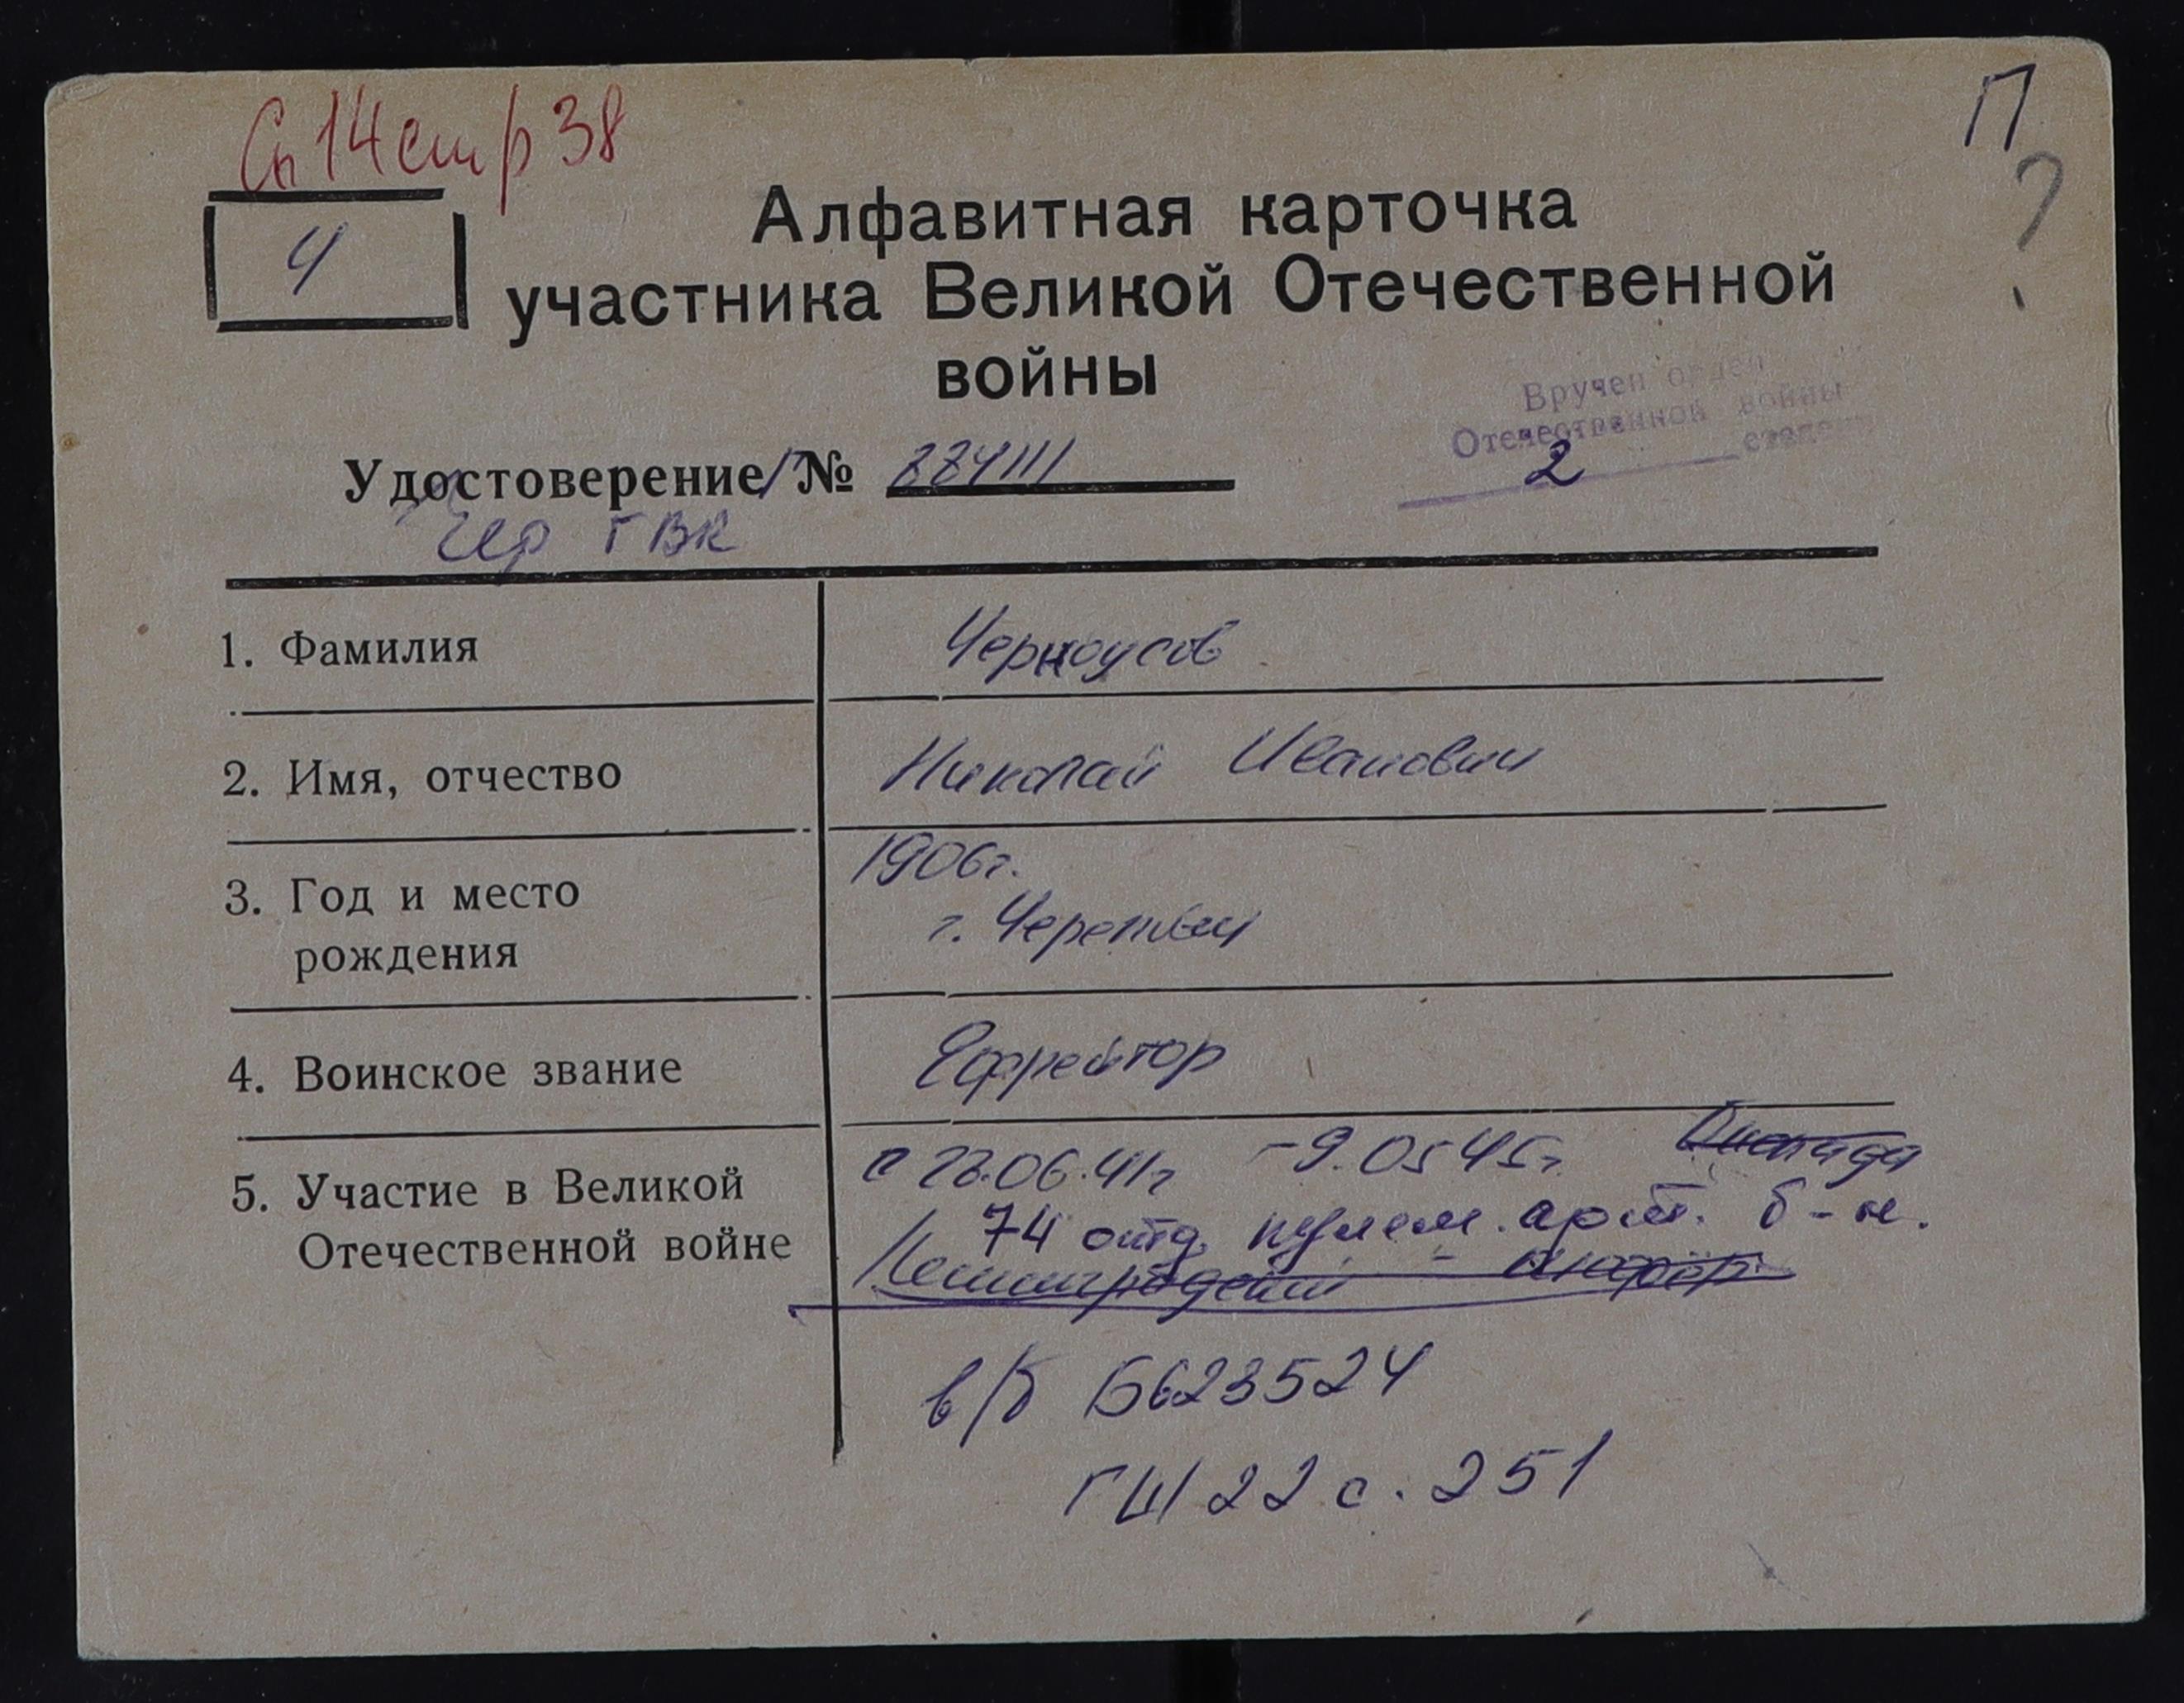 Сп 14 стр 38
П
?
Ч
Алфавитная карточка
участника Великой Отечественной
войны
Вручен орден
Отечественной войны
2 степени
Удостоверение №
ГВК
1. Фамилия Черноусов
2. Имя, отчество Николай Иванович
3. Год и место рождения 1906г.
г. Череповец
4. Воинское звание Ефрейтор
5. Участие в Великой Отечественной войне с 22.06.41г -9.05 45г.
74 отд. пулем. арт. б-н.
Ленинградский
в/б Б623524
ГШ 22 с. 251